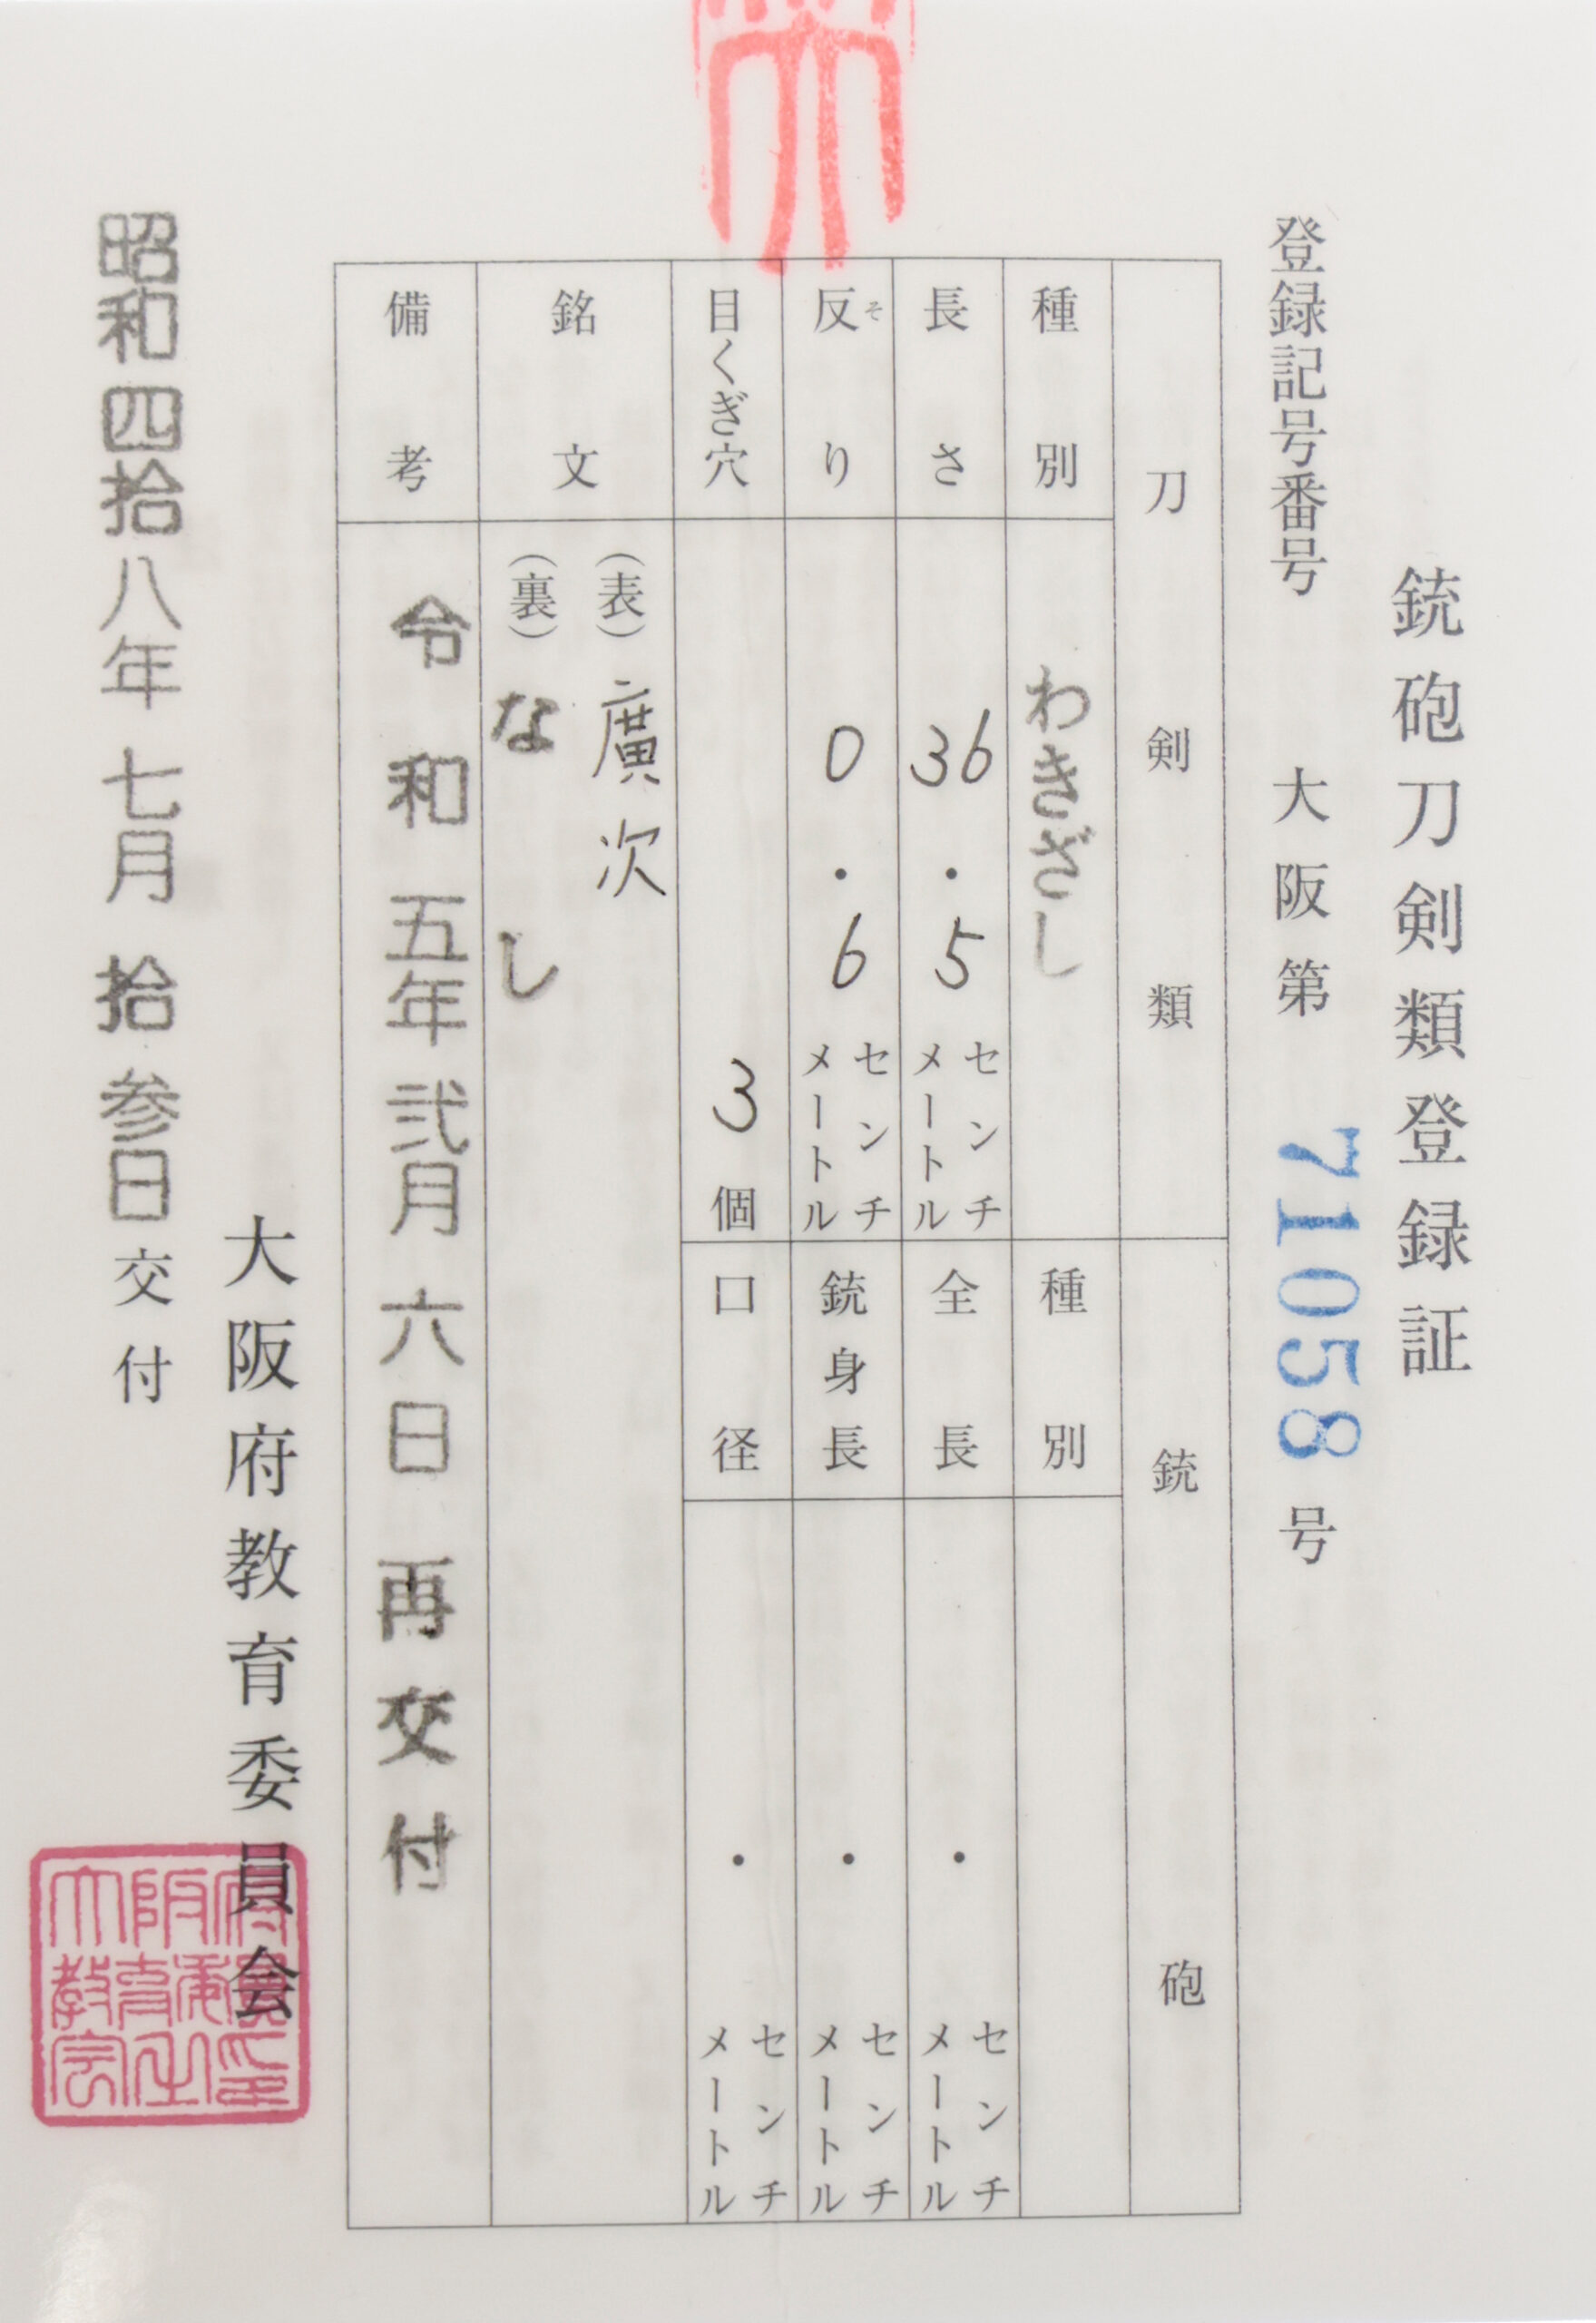 銃砲刀剣類登録証
登録記号番号 大阪第 71058 号
刀剣類
種別 わきざし
長さ 36.5 センチメートル
反り 0.6 センチメートル
そ
目くぎ穴 3 個
銘文 (表) 廣次
(裏) なし
備考 令和五年弐月六日再交付
銃砲
種別
全長 ・ センチメートル
銃身長 ・ センチメートル
口径 ・ センチメートル
大阪府教育委員会
昭和四拾八年七月拾参日交付